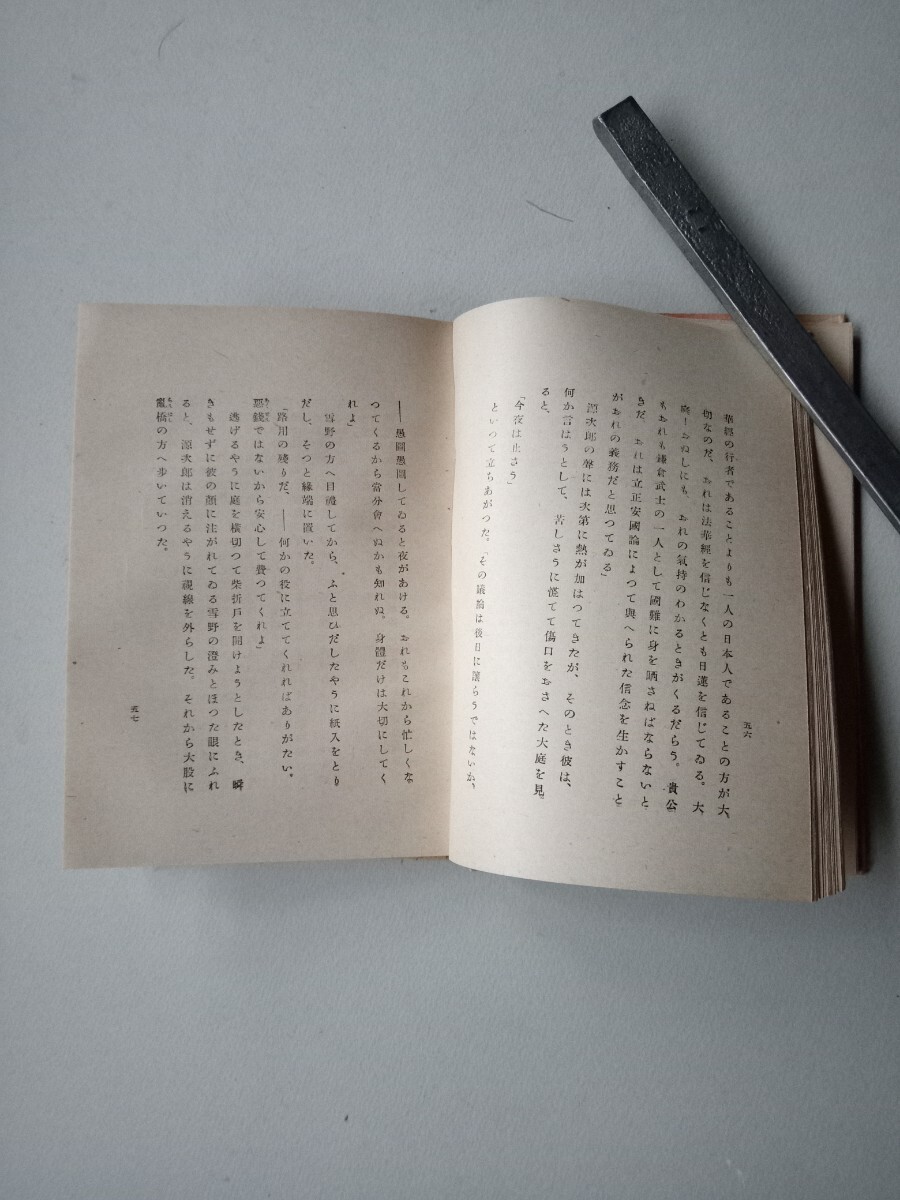 五六
華經の行者であることよりも一人の日本人であることの方が大
切なのだ、おれは法華經を信じなくとも日蓮を信じてゐる。大
庭！おぬしにも、おれの氣持のわかるときがくるだらう。貴公
もおれも鎌倉武士の一人として國難に身を晒さねばならないと
きだ、おれは立正安國論によつて與へられた信念を生かすこと
がおれの義務だと思つてゐる」
源次郎の聲には次第に熱が加はつてきたが、そのとき彼は、
何か言はうとして、苦しさうに慌てて傷口をおさへた大庭を見
ると、
「今夜は止さう」
といつて立ちあがつた。「その議論は後日に讓らうではないか、
――愚圖愚圖してゐると夜があける。おれもこれから忙しくな
つてくるから當分會へぬかも知れぬ。身體だけは大切にしてく
れよ」
雪野の方へ目禮してから、ふと思ひだしたやうに紙入をとり
だし、そつと緣端に置いた。
「路用の殘りだ、――何かの役に立ててくれればありがたい。
惡錢ではないから安心して費つてくれよ」
逃げるやうに庭を橫切つて柴折戶を開けようとしたとき、瞬
きもせずに彼の顏に注がれてゐる雪野の澄みとほつた眼にふれ
ると、源次郎は消えるやうに視線を外らした。それから大股に
橋の方へ步いていつた。
五七